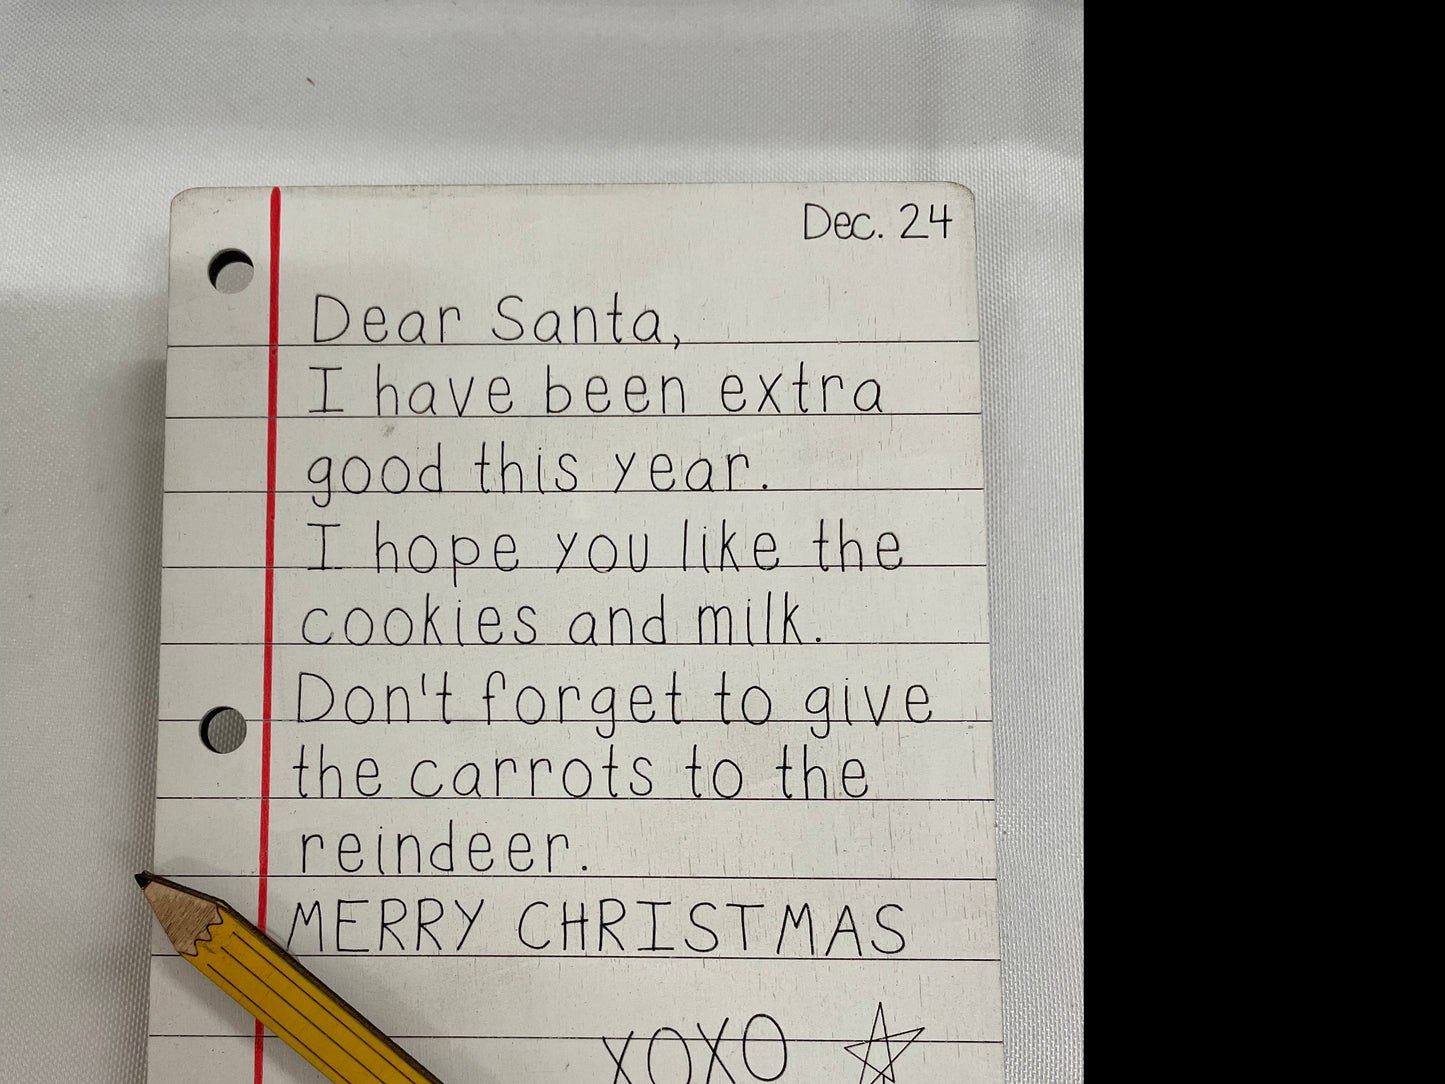 Dec. 24
Dear Santa,
I have been extra
good this year.
I hope you like the
cookies and milk.
Don't forget to give
the carrots to the
reindeer.
MERRY CHRISTMAS
XOXO